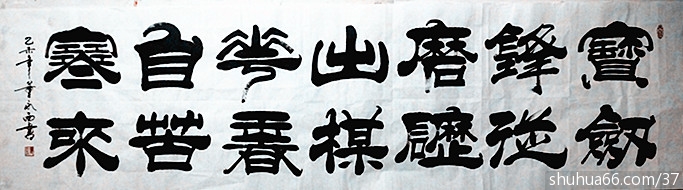 寶劔
鋒從
磨礪
出楳
花香
自苦
寒來
己亥年
shuhua66.com/37